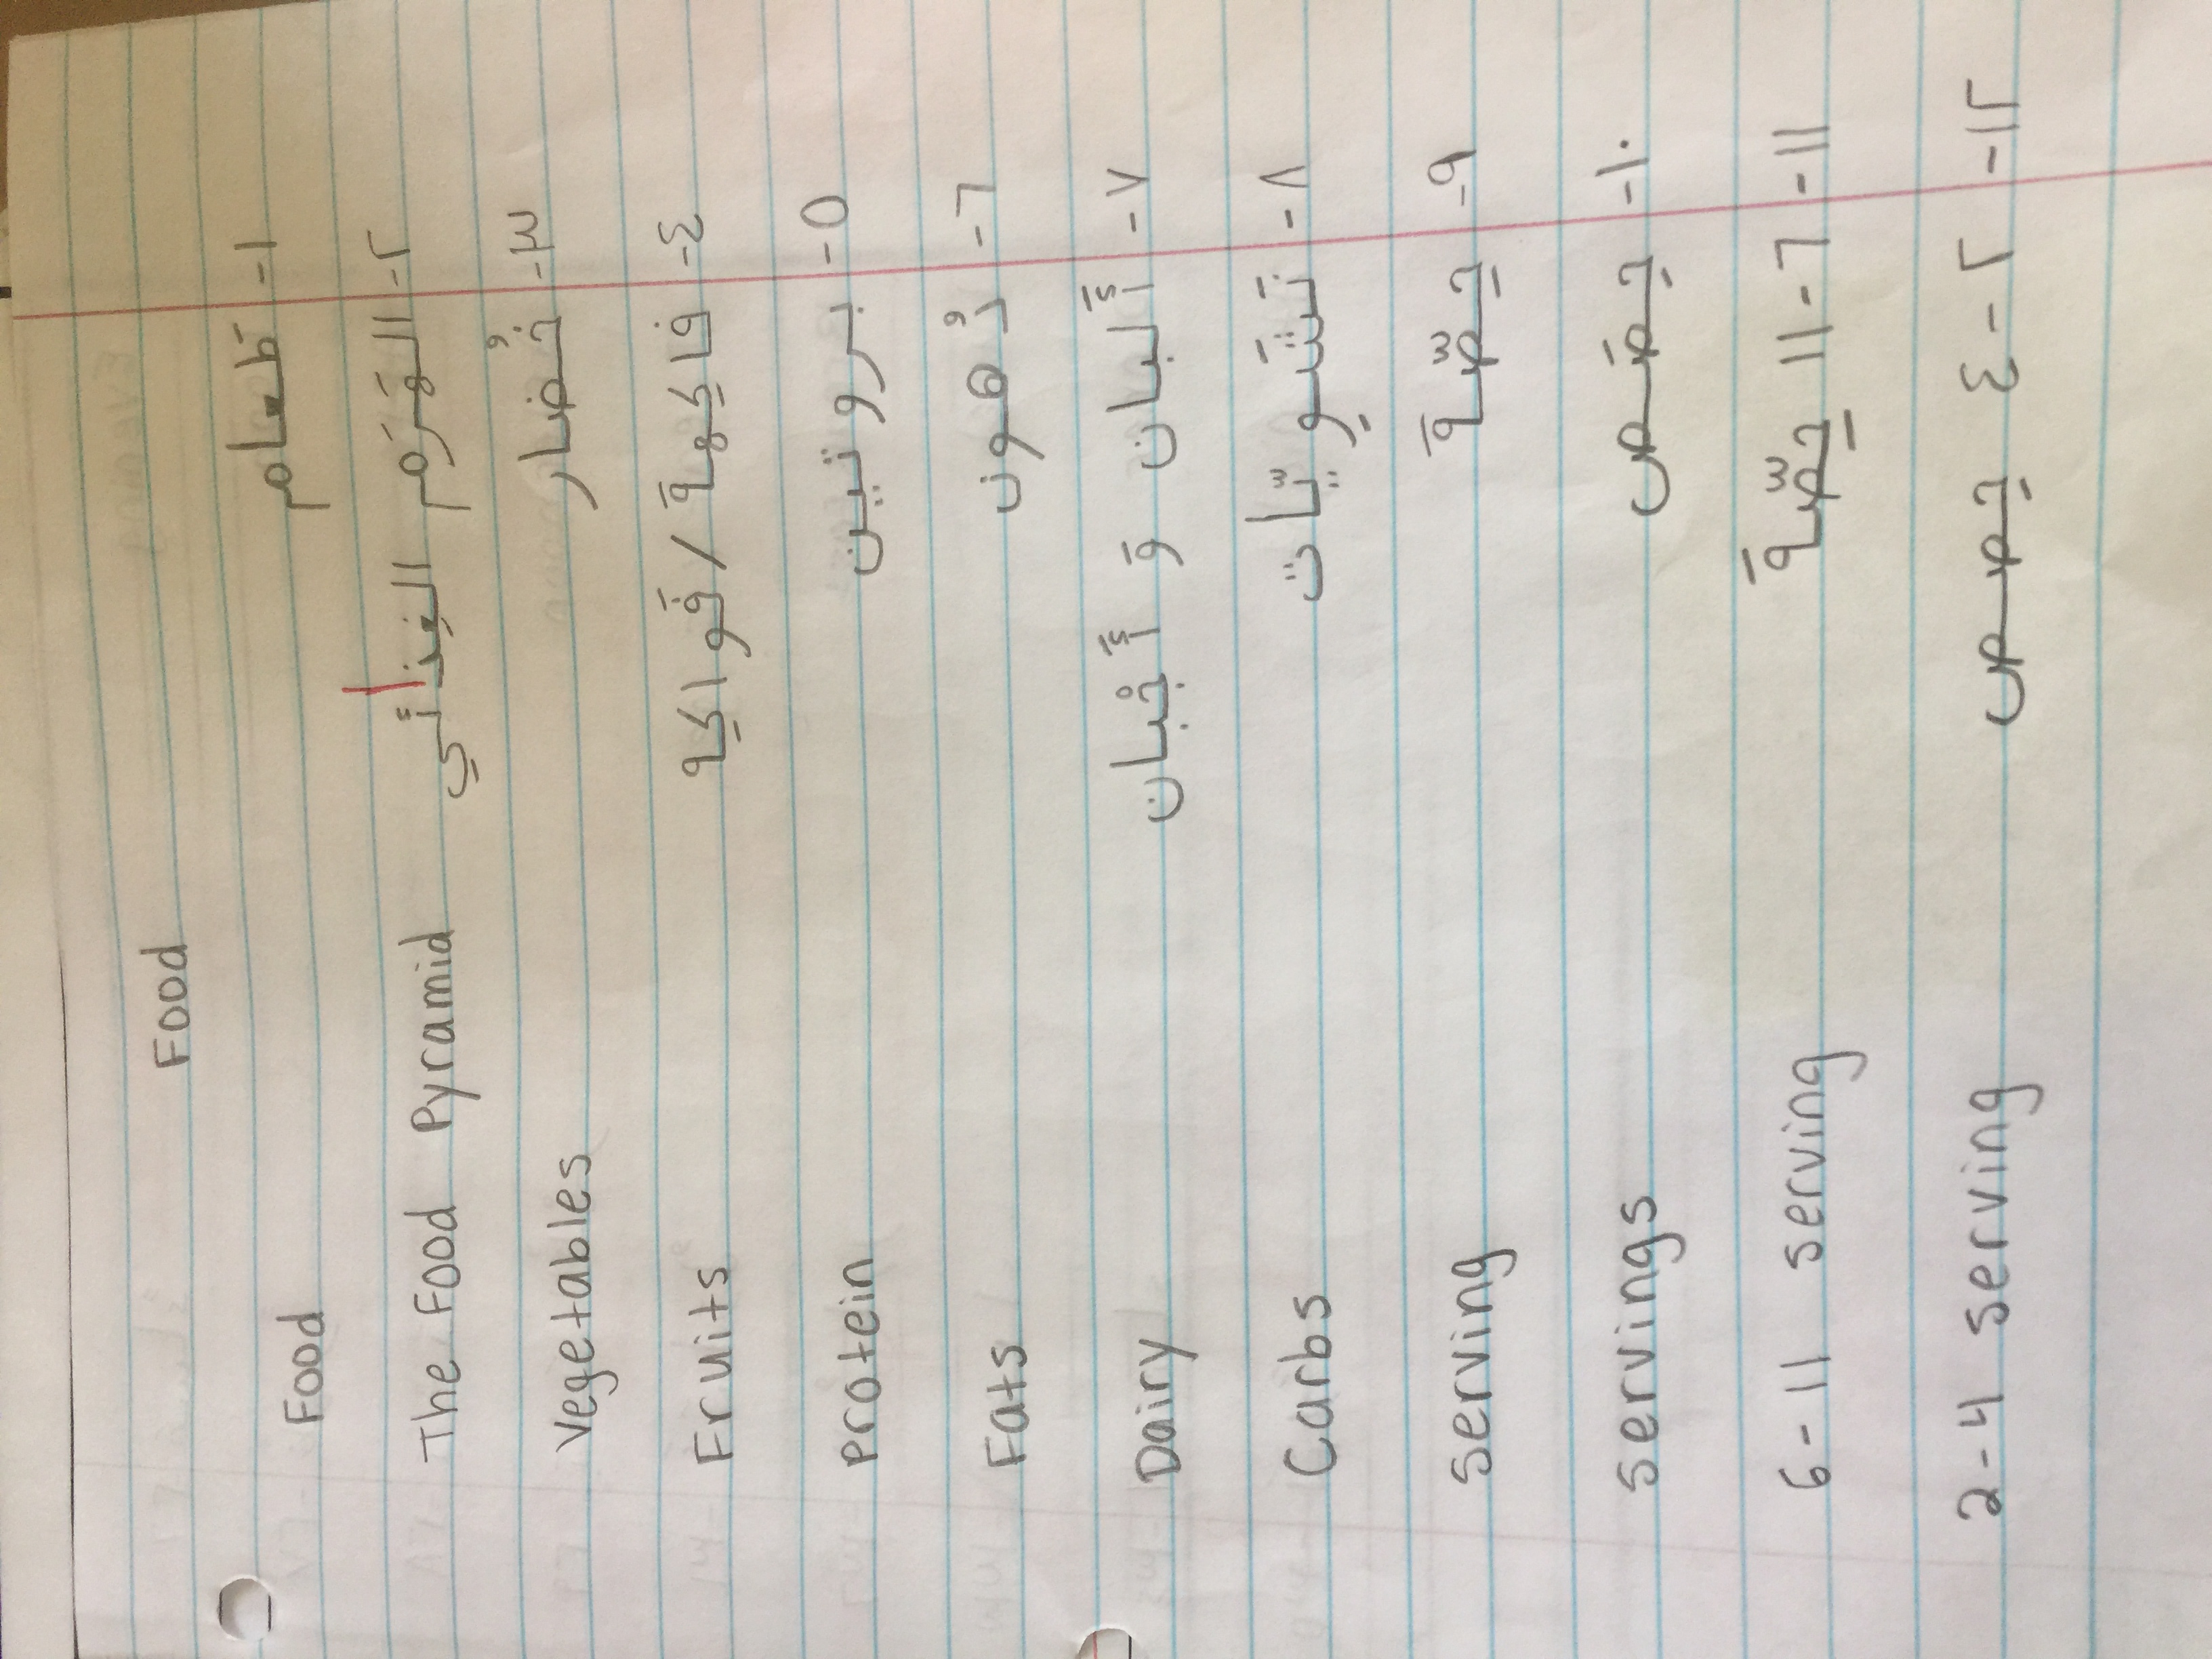 Food
Food طَعام -١
The Food Pyramid الهَرَم الغِذأئي -٢
Vegetables خُضار -٣
Fruits فاكِهة / فَواكِه -٤
Protein بروتين -٥
Fats دُهون -٦
Dairy أَلبان وَ أَجْبان -٧
Carbs نَشَوِيّات -٨
serving حِصّة -٩
servings حِصَص -١٠
6-11 serving ٦-١١ حِصّة -١١
2-4 serving ٢-٤ حِصص -١٢